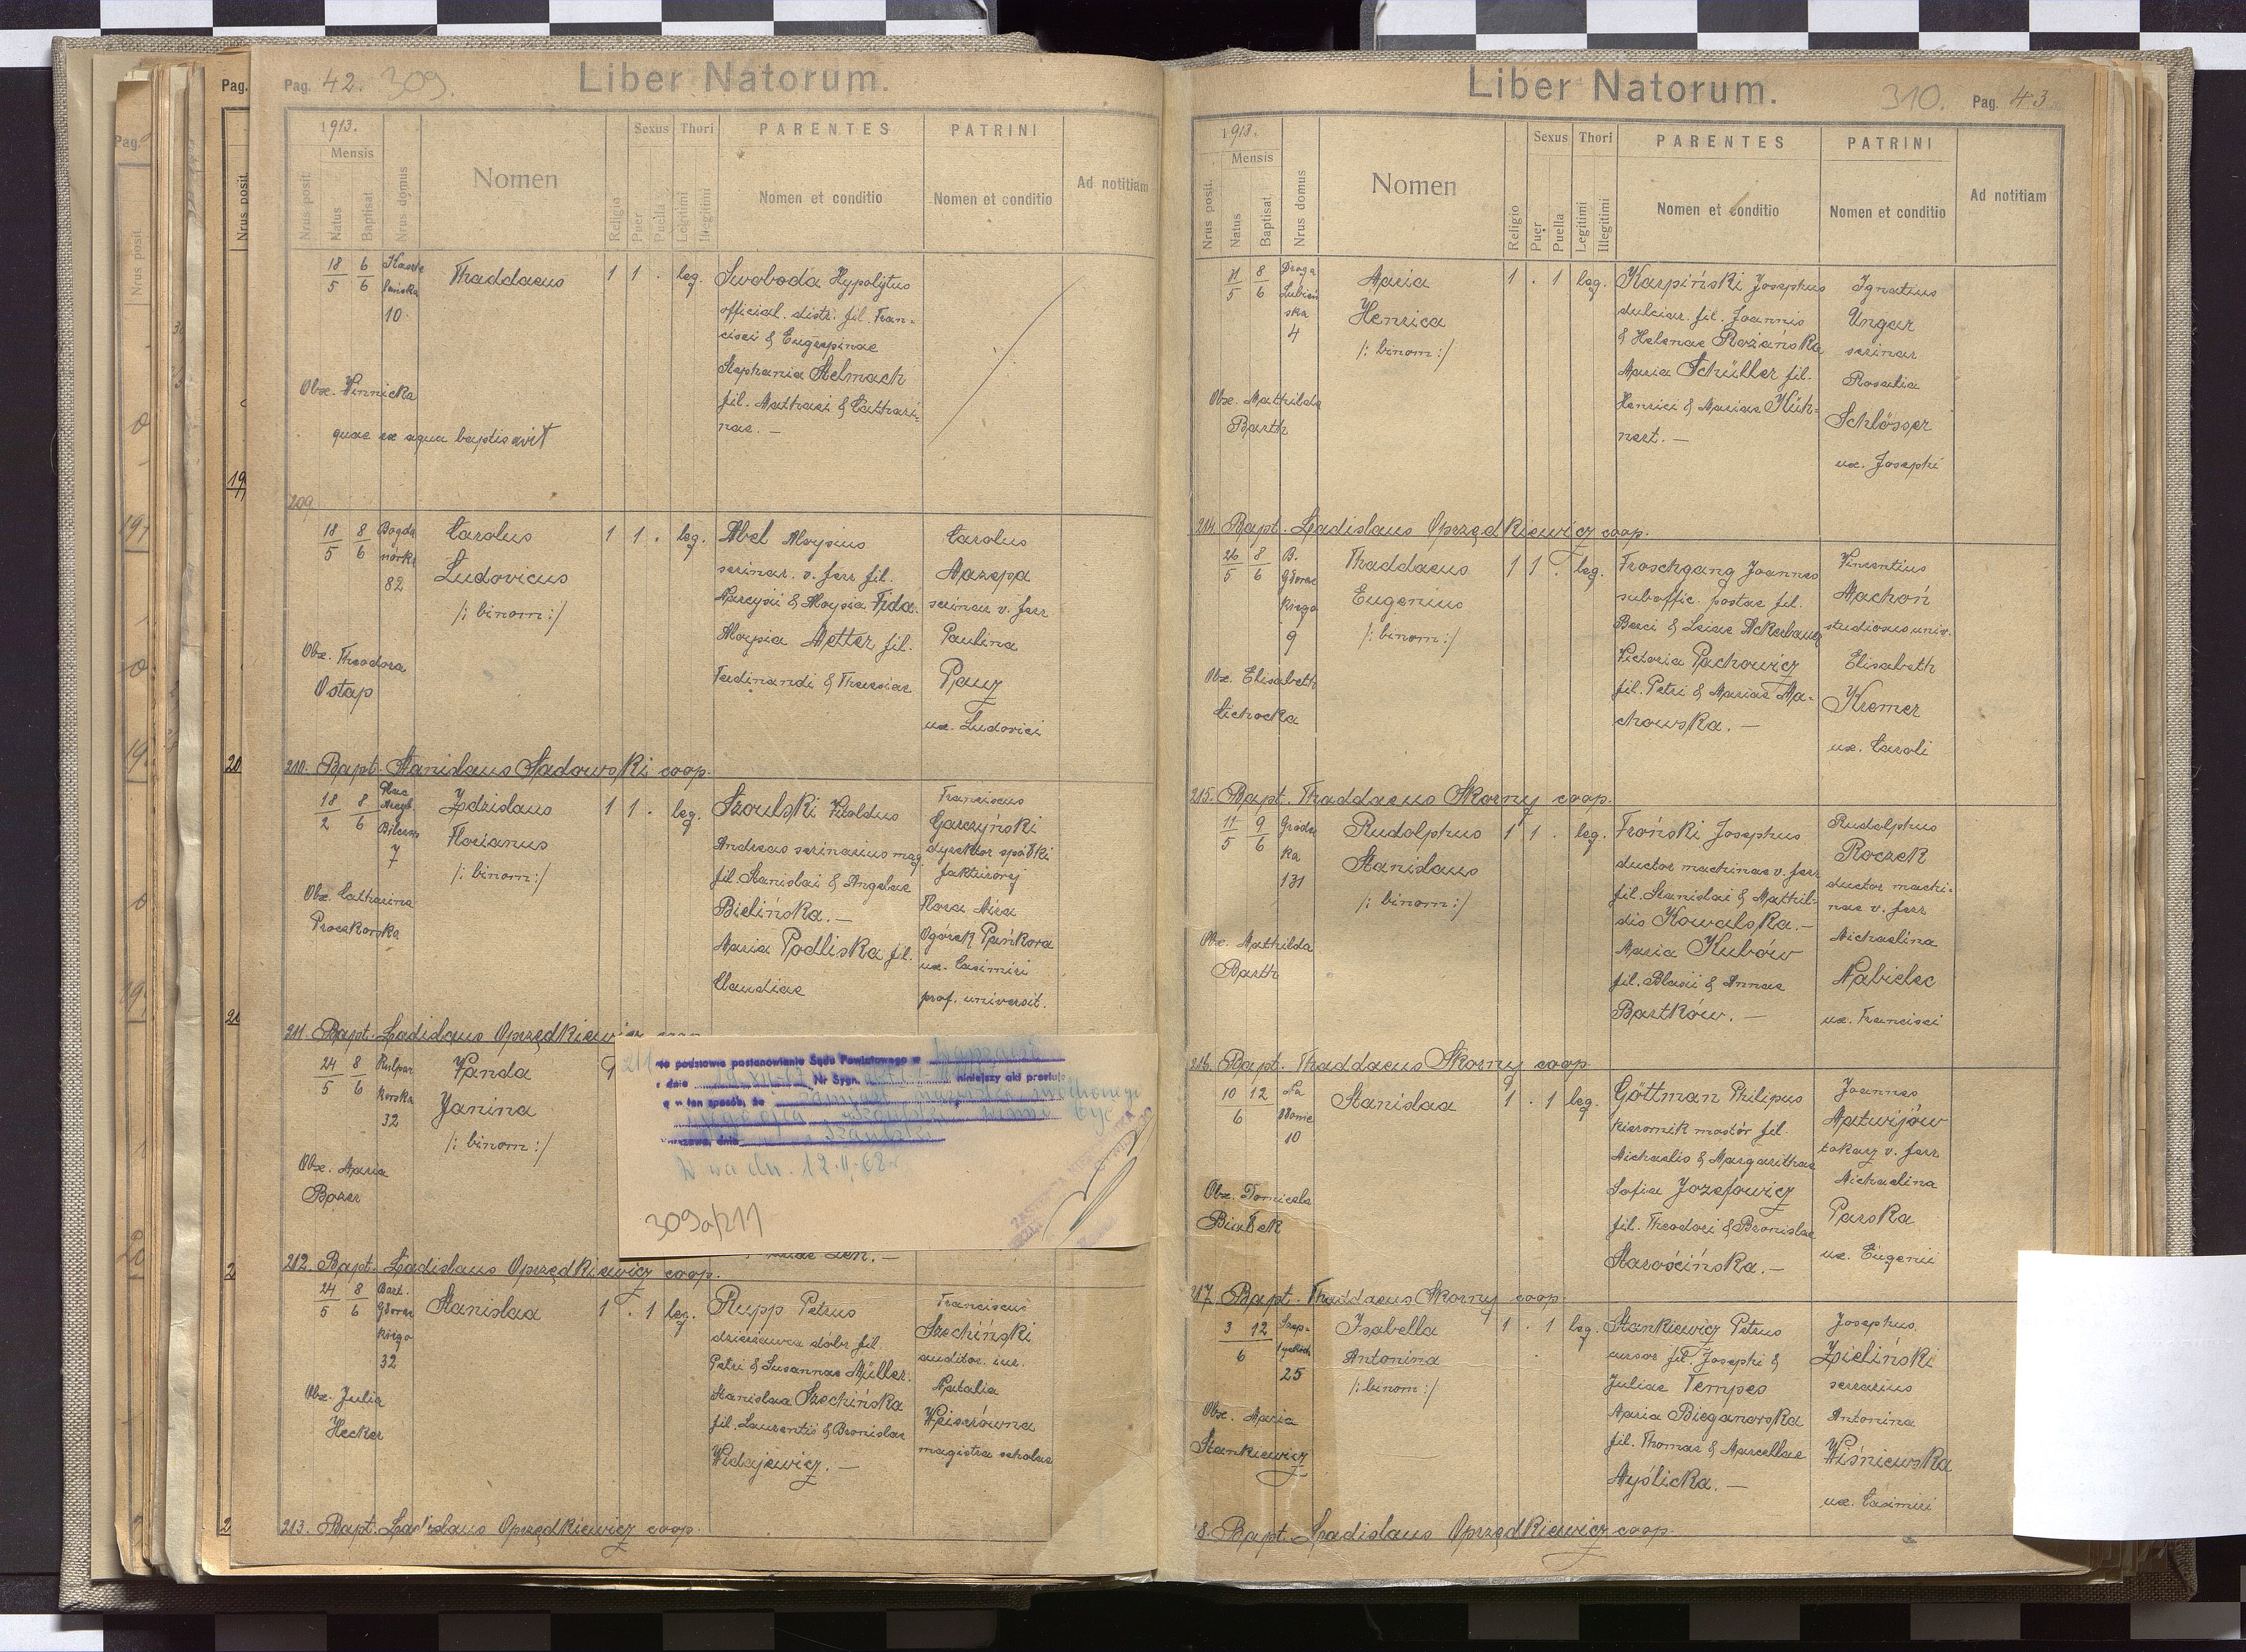 Pag. 42. 309.
Liber Natorum.
1913.
Mensis
Nrus posit.
Natus
Baptisat
Nrus domus
Nomen
Religio
Sexus
Puer
Puella
Thori
Legitimi
Illegitimi
PARENTES
Nomen et conditio
PATRINI
Nomen et conditio
Ad notitiam
18/5 6/6
10
Thaddaeus
1 1 . leg.
Swoboda Hypolitus
official. distr. fil. Fran=
cisci &
Stephania Stelmach
fil. Mathaei & Cathari=
nae. —
Obx. Winnicka
quae ex aqua baptisavit
209
18/5 8/6
Bogda
nówka
82
Carolus
Ludovicus
/: binom :/
1 1 . leg.
Abel Aloysius
scrinar. v. ferr fil.
Narcysii & Aloysia Fida.
Aloysia Metter fil.
Ferdinandi & Theresiae
Carolus
Mazepa
scrinar v. ferr
Paulina
Pauz
ux. Ludovici
Obx. Theodora
Ostap
210. Bapt. Stanislaus Sadowski coop.
18/2 8/6
7
Zdzislaus
Florianus
/: binom :/
1 1 . leg.
Szoulski Vitoldus
Andreas scrinarius mag.
fil. Stanislai & Angelae
Bielińska. —
Maria Podliska fil.
Claudiae
Franciscus
Garczyński
dyrektor spółki
Flora Mira
Ogórek Pańkowa
ux. Casimiri
prof. universit.
Obx. Catharina
Proczkowska
211. Bapt. Ladislaus Oprzędkiewicz coop.
24/5 8/6
Kulpar
kowska
32
Wanda
Janina
/: binom :/
Obx. Maria
Bozer
na podstawie postanowienia Sądu Powiatowego w
z dnia Nr Sygn. niniejszy akt prostuje
się w ten sposób, że
być
Warszawa, dnia
W-wa dn. 12.II.68
309a/211
212. Bapt. Ladislaus Oprzędkiewicz coop.
24/5 8/6
Bart.
Głowac
kiego
32
Stanislaa
1 . 1 leg.
Rupp Petrus
dzierżawca dóbr fil.
Petri & Susannae Müller.
Stanislaa Szechińska
fil. Laurentii & Bronislae
Widajewicz. —
Franciscus
Szechiński
auditor. iur.
Natalia
Weiserówna
magistra scholae
Obx. Julia
Hecker
213. Bapt. Ladislaus Oprzędkiewicz coop.
Liber Natorum.
310. Pag. 43
1913.
Mensis
Nrus posit.
Natus
Baptisat
Nrus domus
Nomen
Religio
Sexus
Puer
Puella
Thori
Legitimi
Illegitimi
PARENTES
Nomen et conditio
PATRINI
Nomen et conditio
Ad notitiam
31/5 8/6
Droga
Lubień
ska
4
Maria
Henrica
/: binom :/
1 . 1 leg.
Karpiński Josephus
dulciar. fil. Joannis
& Helenae Rozańska
Maria Schüller fil.
Henrici & Mariae Küh=
nert. —
Ignatius
Ungar
scrinar
Rosalia
Schlösser
ux. Josephi
Obx. Mathilda
Barth
214. Bapt. Ladislaus Oprzędkiewicz coop.
26/5 8/6
B.
Głowac
kiego
9
Thaddaeus
Eugenius
/: binom :/
1 1 . leg.
Froschgang Joannes
suboffic. postae fil.
Berci & Leiae Ackerbaug
Victoria Pachowicz
fil. Petri & Mariae Ma-
chowska. —
Vincentius
Machoń
studiosus univ.
Elisabeth
Kremer
ux. Caroli
Obx. Elisabeth
Cichocka
215. Bapt. Thaddaeus Skorny coop.
11/5 9/6
Gródec
ka
131
Rudolphus
Stanislaus
/: binom :/
1 1 . leg.
Froński Josephus
ductor machinae v. ferr
fil. Stanislai & Mathil-
dis Kowalska. —
Maria Kubów
fil. Blasii & Annae
Bartków. —
Rudolphus
Roczek
ductor machi-
nae v. ferr
Michaelina
Nabielec
ux. Francisci
Obx. Mathilda
Barth
216. Bapt. Thaddaeus Skorny coop.
10 12
6
Na
Błonie
10
Stanislaa
1 . 1 leg.
Göttman Philipus
kierownik mostów fil.
Michaelis & Margarithae
Sofia Jozefowicz
fil. Theodori & Bronislae
Starościńska. —
Joannes
Matwijów
tokarz v. ferr
Michaelina
Parska
ux. Eugenii
Obx. Domicela
Białek
217. Bapt. Thaddaeus Skorny coop.
3 12
6
Szep-
tyckich
25
Isabella
Antonina
/: binom :/
1 . 1 leg.
Stankiewicz Petrus
cursor fil. Josephi &
Juliae Tempes
Maria Bieganowska
fil. Thomae & Marcellae
Myślicka. —
Josephus
Zieliński
serrarius
Antonina
Wiśniewska
ux. Casimiri
Obx. Maria
Stankiewicz
8. Bapt. Ladislaus Oprzędkiewicz coop.